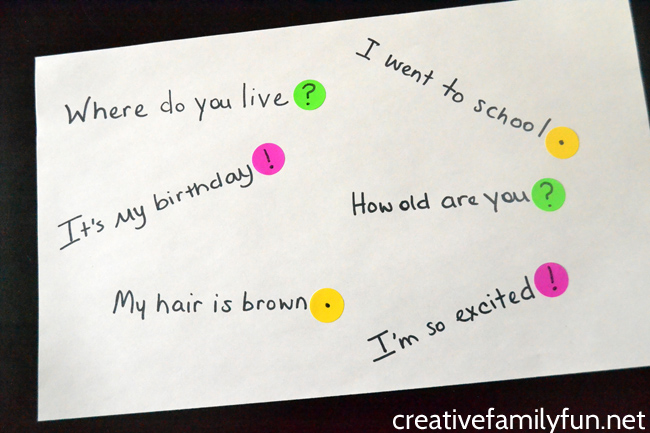 Where do you live?
I went to school.
It's my birthday!
How old are you?
My hair is brown.
I'm so excited!
creativefamilyfun.net